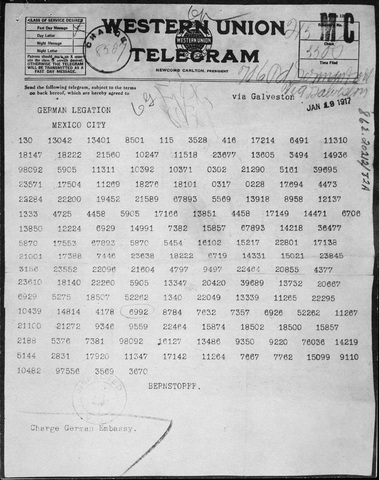 CLASS OF SERVICE DESIRED
Fast Day Message
Day Letter
Night Message
Night Letter
OTHERWISE THE TELEGRAM
WILL BE TRANSMITTED AS A
FAST DAY MESSAGE.
WESTERN UNION
WESTERN UNION
TELEGRAM
NEWCOMB CARLTON, PRESIDENT
Send the following telegram, subject to the terms
on back hereof, which are hereby agreed to
via Galveston
JAN 19 1917
GERMAN LEGATION
MEXICO CITY
130 13042 13401 8501 115 3528 416 17214 6491 11310
18147 18222 21560 10247 11518 23677 13605 3494 14936
98092 5905 11311 10392 10371 0302 21290 5161 39695
23571 17504 11269 18276 18101 0317 0228 17694 4473
22284 22200 19452 21589 67893 5569 13918 8958 12137
1333 4725 4458 5905 17166 13851 4458 17149 14471 6706
13850 12224 6929 14991 7382 15857 67893 14218 36477
5870 17553 67893 5870 5454 16102 15217 22801 17138
21001 17388 7446 23638 18222 6719 14331 15021 23845
3156 23552 22096 21604 4797 9497 22464 20855 4377
23610 18140 22260 5905 13347 20420 39689 13732 20667
6929 5275 18507 52262 1340 22049 13339 11265 22295
10439 14814 4178 6992 8784 7632 7357 6926 52262 11267
21100 21272 9346 9559 22464 15874 18502 18500 15857
2188 5376 7381 98092 16127 13486 9350 9220 76036 14219
5144 2831 17920 11347 17142 11264 7667 7762 15099 9110
10482 97556 3569 3670
BERNSTORFF.
Charge German Embassy.